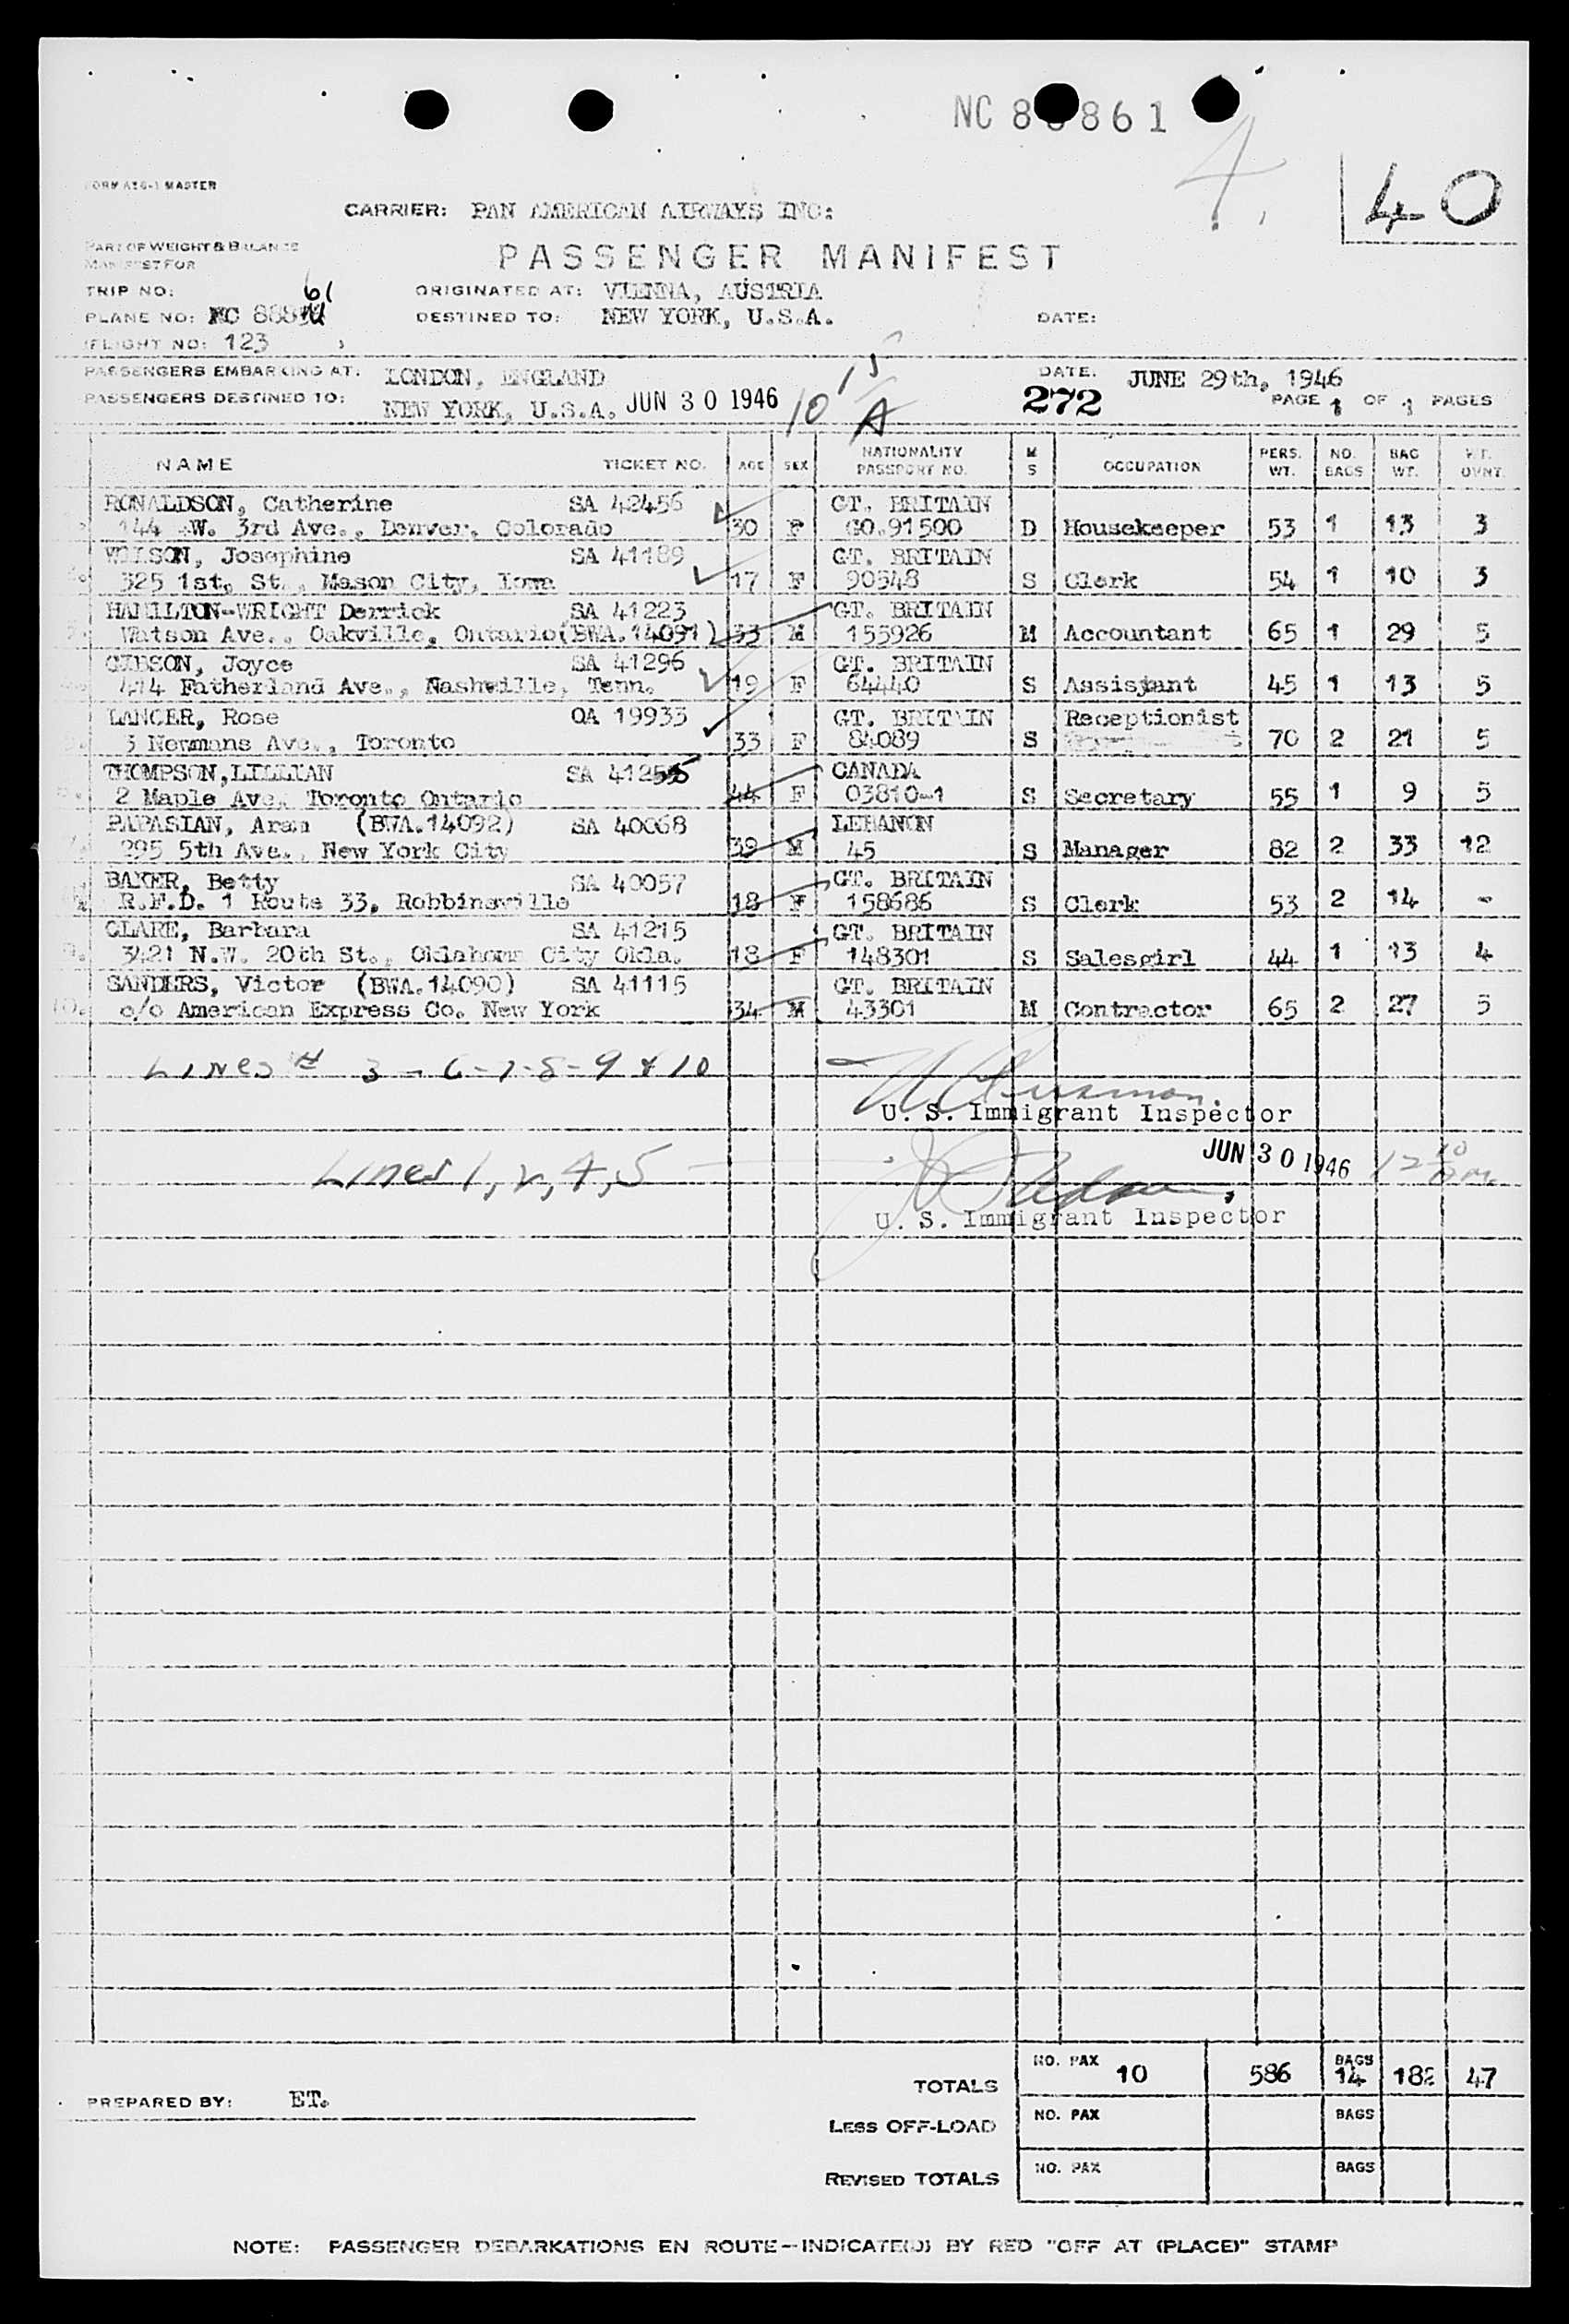 NC 8 861
4.
40
FORM A16-1 MASTER
CARRIER: PAN AMERICAN AIRWAYS INC:
PART OF WEIGHT & BALANCE
MANIFEST FOR
PASSENGER MANIFEST
TRIP NO: ORIGINATED AT: VIENNA, AUSTRIA
PLANE NO: NC 888 61 DESTINED TO: NEW YORK, U.S.A. DATE:
FLIGHT NO: 123
PASSENGERS EMBARKING AT: LONDON, ENGLAND DATE: JUNE 29th, 1946
PASSENGERS DESTINED TO: NEW YORK, U.S.A. JUN 30 1946 10 15 A 272 PAGE 1 OF 1 PAGES
NAME TICKET NO. AGE SEX NATIONALITY PASSPORT NO. M S OCCUPATION PERS. WT. NO. BAGS BAG WT. WT. OVNT.
RONALDSON, Catherine SA 42456 GT. BRITAIN
144 W. 3rd Ave., Denver, Colorado 30 F CO.91500 D Housekeeper 53 1 13 3
WILSON, Josephine SA 41189 GT. BRITAIN
325 1st, St., Mason City, Iowa 17 F 90548 S Clerk 54 1 10 3
HAMILTON-WRIGHT Derrick SA 41223 GT. BRITAIN
Watson Ave., Oakville, Ontario(BWA.14091) 33 M 155926 M Accountant 65 1 29 5
GIBSON, Joyce SA 41296 GT. BRITAIN
414 Fatherland Ave., Nashville, Tenn. 19 F 64440 S Assistant 45 1 13 5
LANCER, Rose QA 19933 GT. BRITAIN Receptionist
3 Newmans Ave., Toronto 33 F 84089 S 70 2 21 5
THOMPSON,LILLIAN SA 41255 CANADA
2 Maple Ave. Toronto Ontario 44 F 03810-1 S Secretary 55 1 9 5
PAPASIAN, Aram (BWA.14092) SA 40068 LEBANON
295 5th Ave., New York City 39 M 45 S Manager 82 2 33 12
BAKER, Betty SA 40057 GT. BRITAIN
R.F.D. 1 Route 33, Robbinsville 18 F 158686 S Clerk 53 2 14 -
CLARE, Barbara SA 41215 GT. BRITAIN
3421 N.W. 20th St., Oklahoma City Okla. 18 F 148301 S Salesgirl 44 1 13 4
SANDERS, Victor (BWA.14090) SA 41115 GT. BRITAIN
10. c/o American Express Co. New York 34 M 43301 M Contractor 65 2 27 5
Lines # 3 - 6-7-8-9 & 10
U. S. Immigrant Inspector
JUN 30 1946 12 10
Lines 1, 2, 4, 5
U. S. Immigrant Inspector
TOTALS NO. PAX 10 586 BAGS 14 182 47
PREPARED BY: ET.
LESS OFF-LOAD NO. PAX BAGS
REVISED TOTALS NO. PAX BAGS
NOTE: PASSENGER DEBARKATIONS EN ROUTE--INDICATE(D) BY RED "OFF AT (PLACE)" STAMP